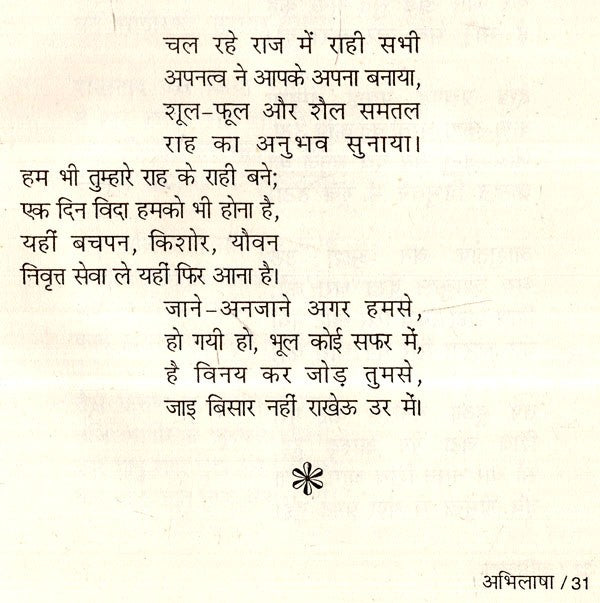 चल रहे राज में राही सभी
अपनत्व ने आपके अपना बनाया,
शूल-फूल और शैल समतल
राह का अनुभव सुनाया।
हम भी तुम्हारे राह के राही बने;
एक दिन विदा हमको भी होना है,
यहीं बचपन, किशोर, यौवन
निवृत्त सेवा ले यहीं फिर आना है।
जाने-अनजाने अगर हमसे,
हो गयी हो, भूल कोई सफर में,
है विनय कर जोड़ तुमसे,
जाइ बिसार नहीं राखेऊ उर में।
अभिलाषा / 31